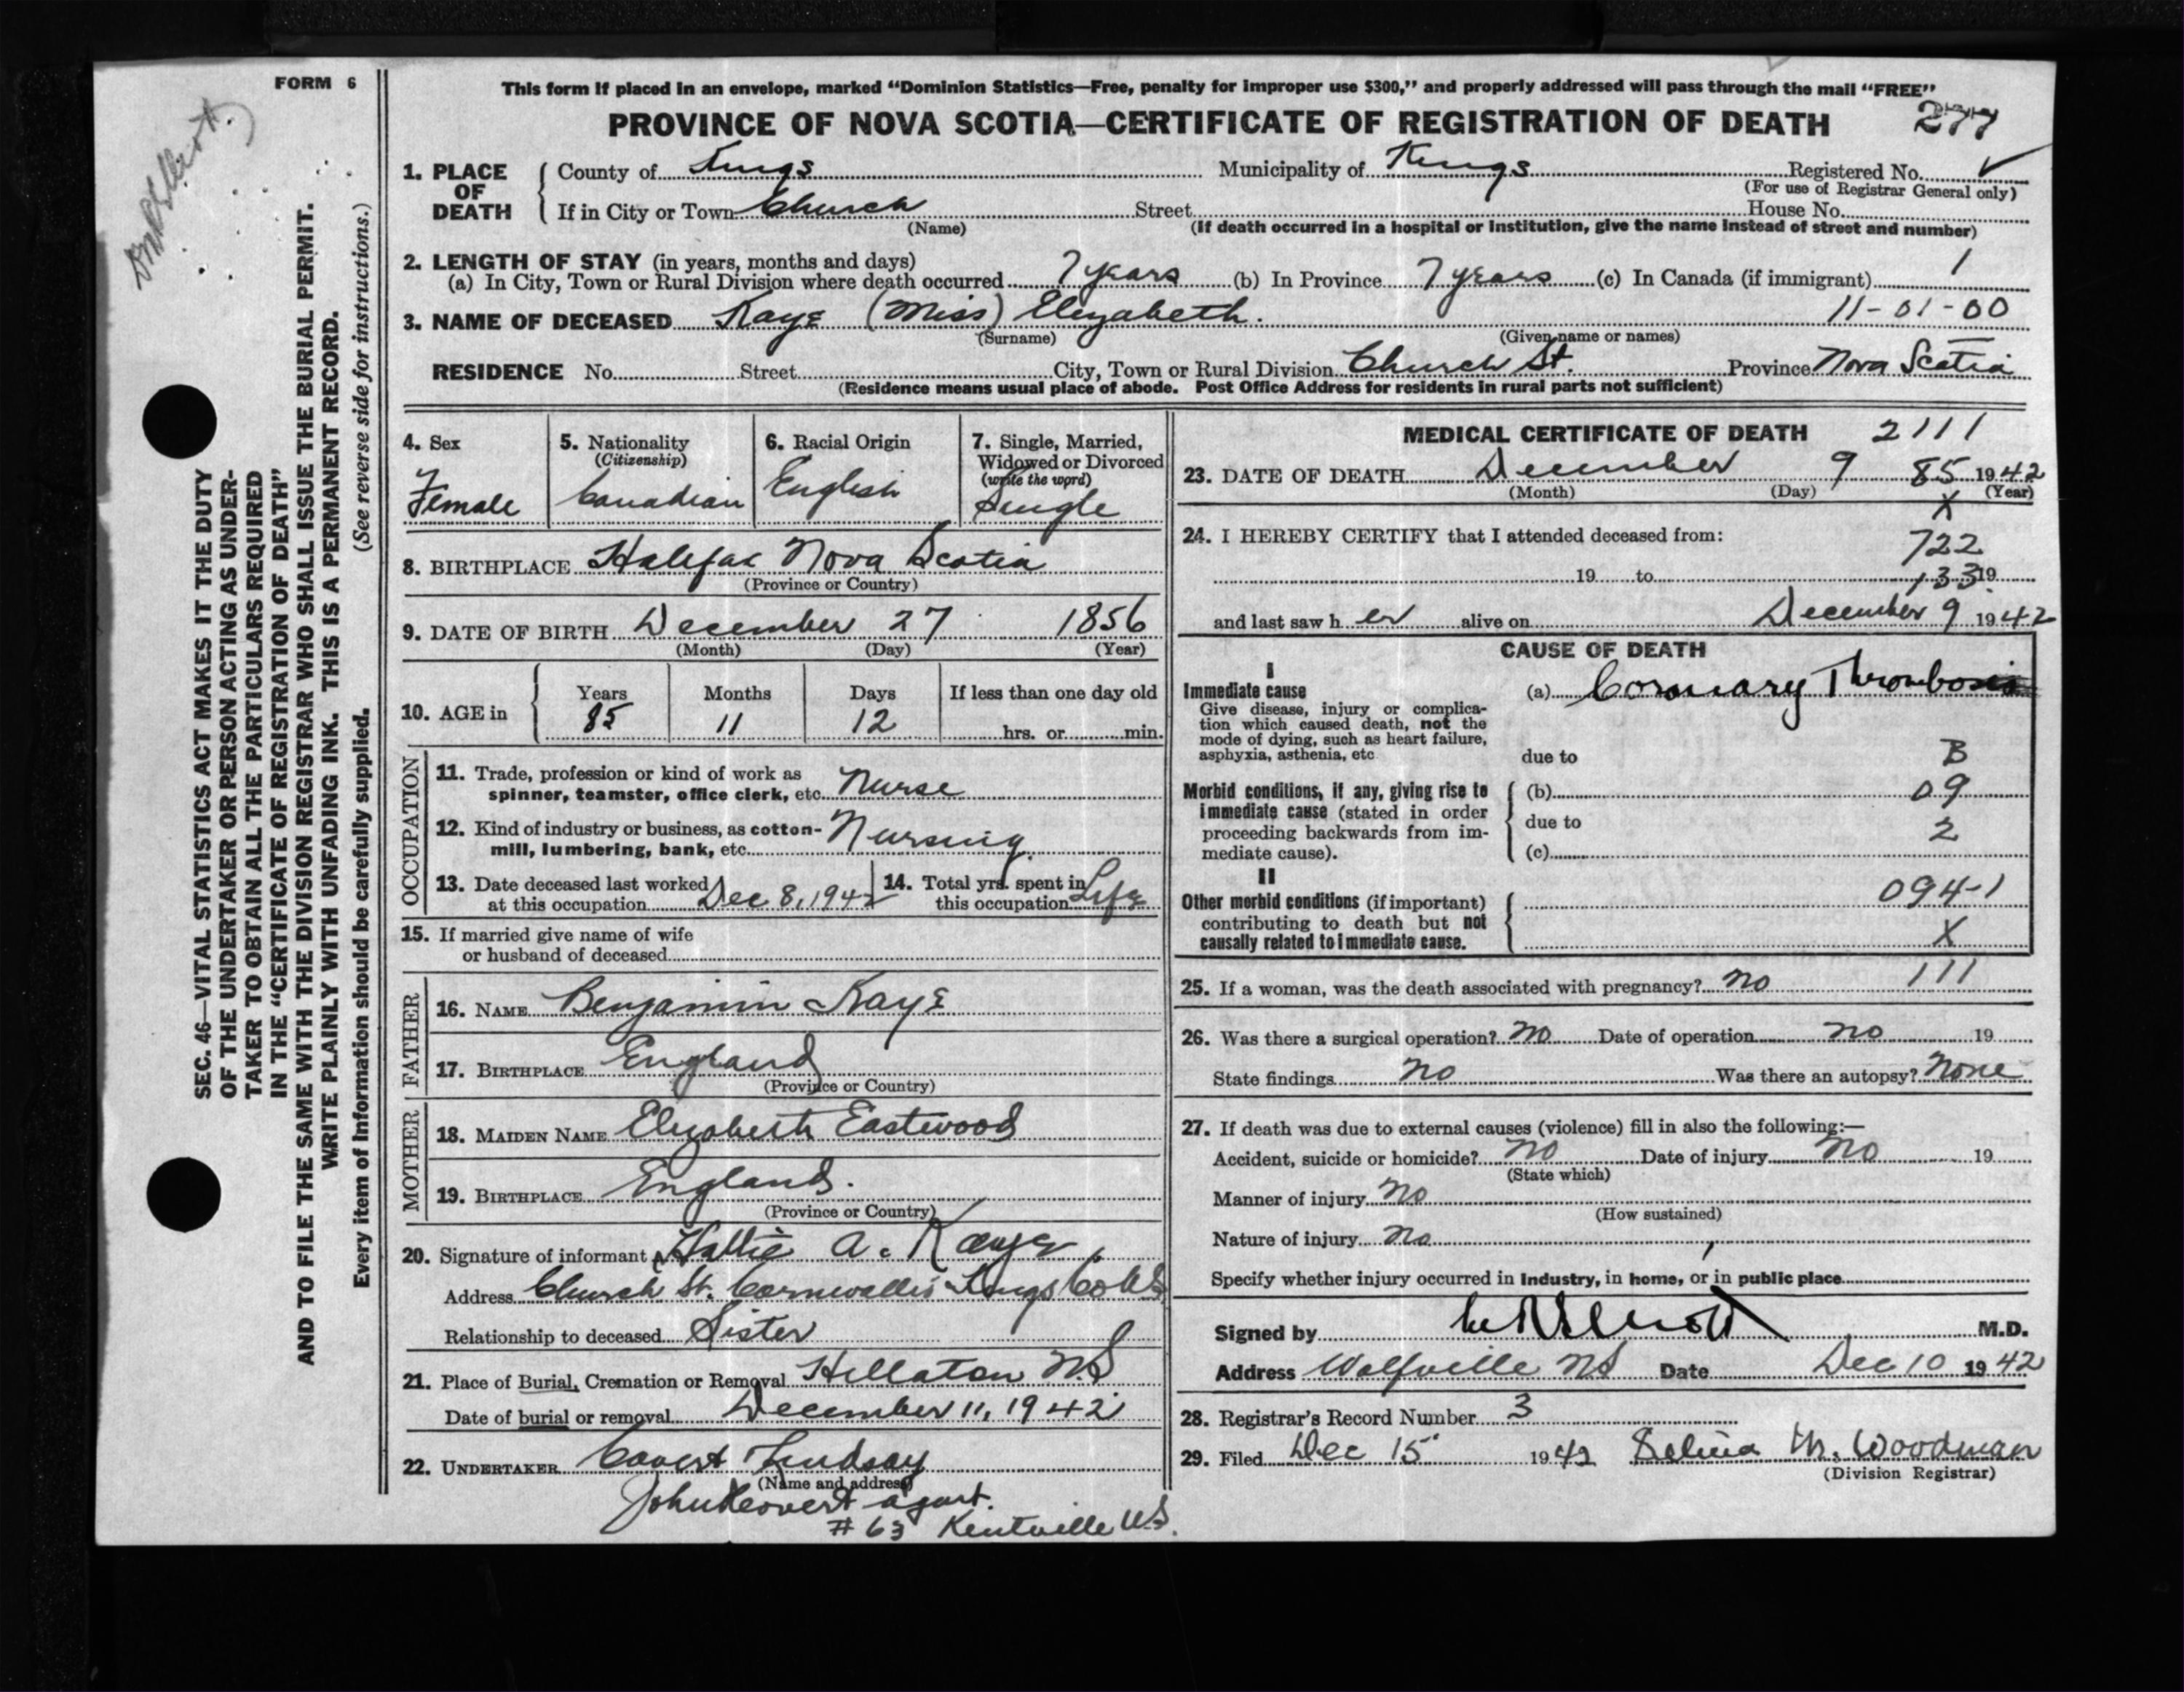 FORM 6
This form if placed in an envelope, marked “Dominion Statistics—Free, penalty for improper use $300,” and properly addressed will pass through the mail “FREE”
PROVINCE OF NOVA SCOTIA—CERTIFICATE OF REGISTRATION OF DEATH 277
1. PLACE OF DEATH County of Kings Municipality of Kings Registered No. ✓
(For use of Registrar General only)
If in City or Town Church Street House No.
(Name) (If death occurred in a hospital or institution, give the name instead of street and number)
2. LENGTH OF STAY (in years, months and days)
(a) In City, Town or Rural Division where death occurred 7 years (b) In Province 7 years (c) In Canada (if immigrant) 1
3. NAME OF DECEASED Kaye (Miss) Elizabeth. 11-01-00
(Surname) (Given name or names)
RESIDENCE No. Street City, Town or Rural Division Church St. Province Nova Scotia
(Residence means usual place of abode. Post Office Address for residents in rural parts not sufficient)
4. Sex
Female
5. Nationality
(Citizenship)
Canadian
6. Racial Origin
English
7. Single, Married,
Widowed or Divorced
(write the word)
Single
8. BIRTHPLACE Halifax Nova Scotia
(Province or Country)
9. DATE OF BIRTH December 27 1856
(Month) (Day) (Year)
10. AGE in Years Months Days If less than one day old
85 11 12 hrs. or min.
OCCUPATION
11. Trade, profession or kind of work as
spinner, teamster, office clerk, etc. Nurse
12. Kind of industry or business, as cotton-
mill, lumbering, bank, etc. Nursing
13. Date deceased last worked
at this occupation Dec 8, 1942
14. Total yrs. spent in
this occupation Life
15. If married give name of wife
or husband of deceased
FATHER
16. NAME Benjamin Kaye
17. BIRTHPLACE England
(Province or Country)
MOTHER
18. MAIDEN NAME Elizabeth Eastwood
19. BIRTHPLACE England.
(Province or Country)
20. Signature of informant Hattie A. Kaye
Address Church St. Cornwallis Kings Co NS
Relationship to deceased Sister
21. Place of Burial, Cremation or Removal Hillaton N.S
Date of burial or removal December 11, 1942
22. UNDERTAKER Covert Lindsay
(Name and address)
agent.
# 63 Kentville N.S.
MEDICAL CERTIFICATE OF DEATH 2111
23. DATE OF DEATH December 9 85 1942
(Month) (Day) (Year)
X
24. I HEREBY CERTIFY that I attended deceased from:
722
19 to 133 19
and last saw h er alive on December 9 1942
CAUSE OF DEATH
I
Immediate cause
Give disease, injury or complica-
tion which caused death, not the
mode of dying, such as heart failure,
asphyxia, asthenia, etc
(a) Coronary Thrombosis
due to B
Morbid conditions, if any, giving rise to
immediate cause (stated in order
proceeding backwards from im-
mediate cause).
(b) 09
due to 2
(c)
II
Other morbid conditions (if important)
contributing to death but not
causally related to immediate cause.
094-1
X
25. If a woman, was the death associated with pregnancy? no 111
26. Was there a surgical operation? no Date of operation no 19
State findings no Was there an autopsy? None
27. If death was due to external causes (violence) fill in also the following:—
Accident, suicide or homicide? no Date of injury no 19
(State which)
Manner of injury no
(How sustained)
Nature of injury no
Specify whether injury occurred in industry, in home, or in public place
Signed by M.D.
Address Wolfville NS Date Dec 10 1942
28. Registrar's Record Number 3
29. Filed Dec 15 1942 Selina M. Woodman
(Division Registrar)
SEC. 46—VITAL STATISTICS ACT MAKES IT THE DUTY
OF THE UNDERTAKER OR PERSON ACTING AS UNDER-
TAKER TO OBTAIN ALL THE PARTICULARS REQUIRED
IN THE “CERTIFICATE OF REGISTRATION OF DEATH”
AND TO FILE THE SAME WITH THE DIVISION REGISTRAR WHO SHALL ISSUE THE BURIAL PERMIT.
WRITE PLAINLY WITH UNFADING INK. THIS IS A PERMANENT RECORD.
Every item of Information should be carefully supplied. (See reverse side for instructions.)